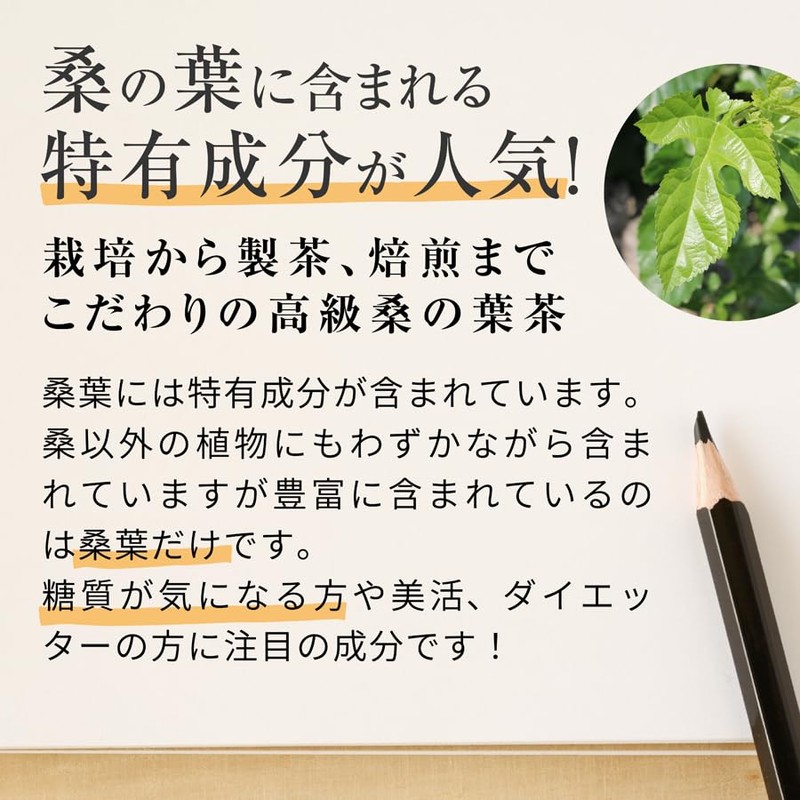 桑の葉に含まれる
特有成分が人気!
栽培から製茶、焙煎まで
こだわりの高級桑の葉茶
桑葉には特有成分が含まれています。
桑以外の植物にもわずかながら含ま
れていますが豊富に含まれているの
は桑葉だけです。
糖質が気になる方や美活、ダイエッ
ターの方に注目の成分です！